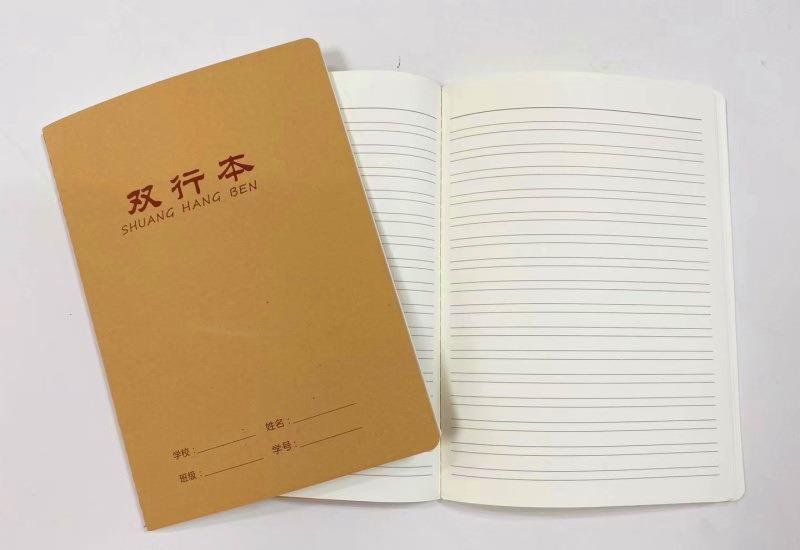 双行本
SHUANG HANG BEN
学校： 姓名：
班级： 学号：